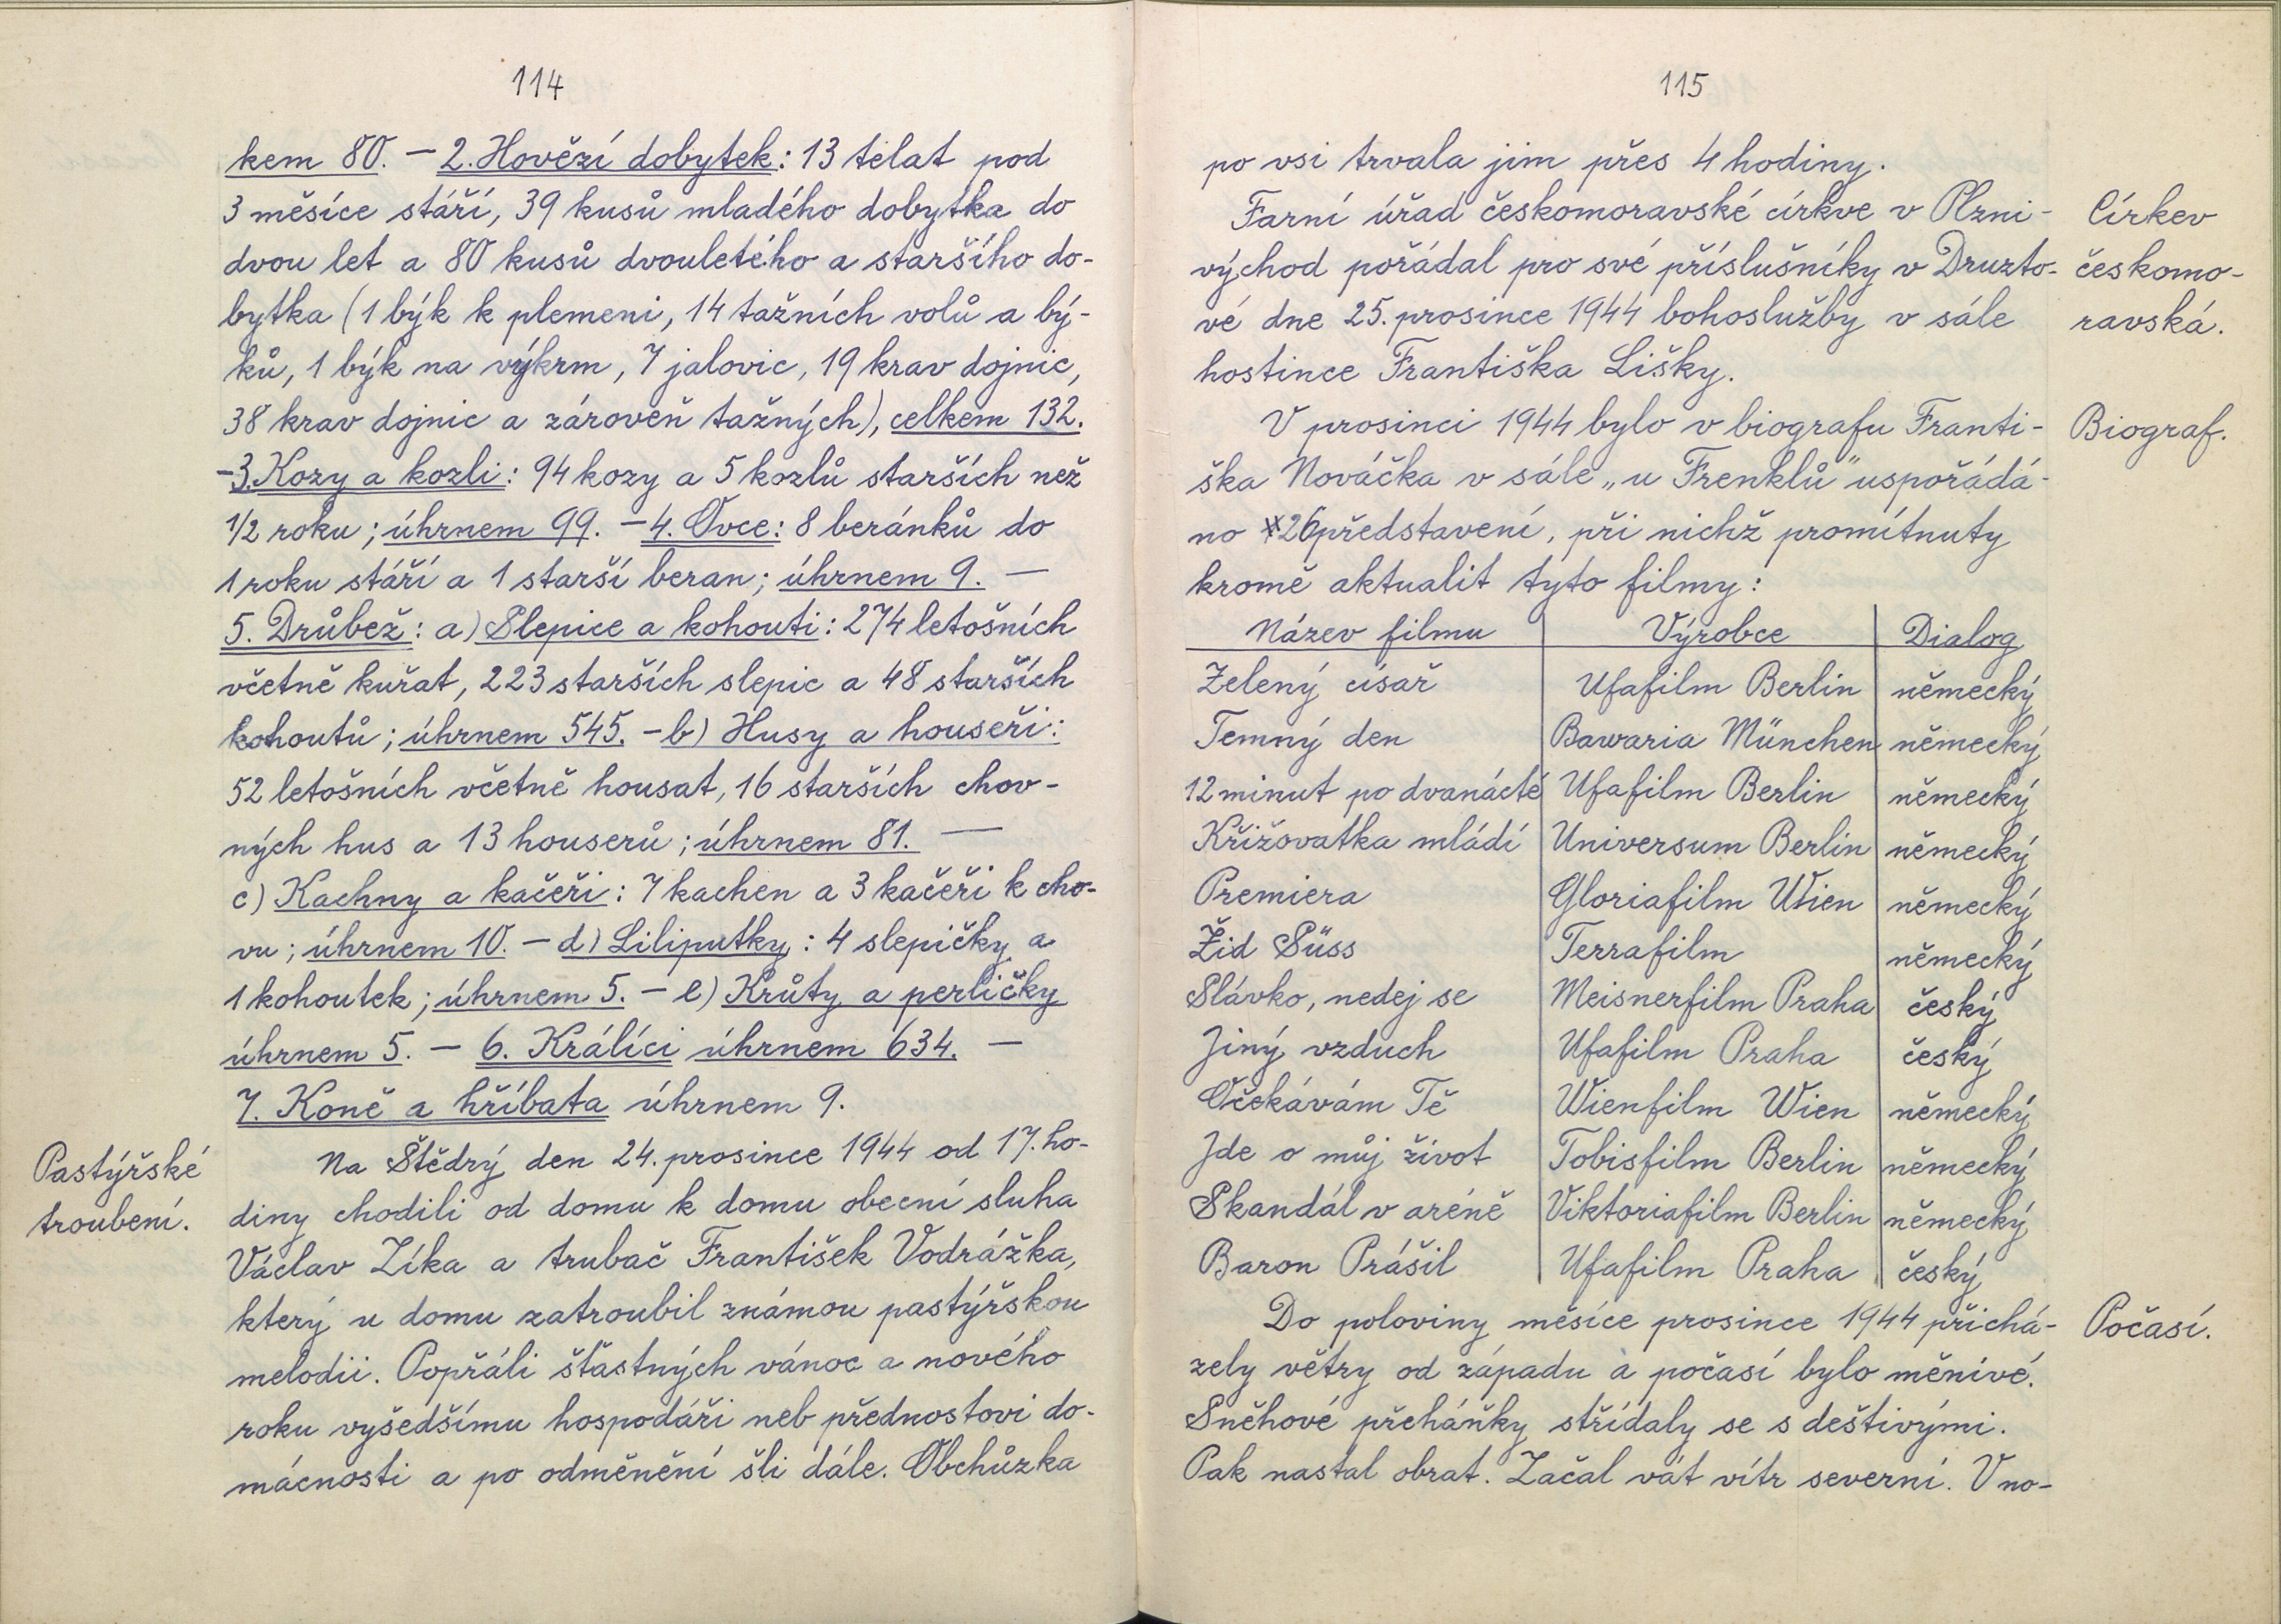 114
kem 80. – 2. Hovězí dobytek: 13 telat pod
3 měsíce stáří, 39 kusů mladého dobytka do
dvou let a 80 kusů dvouletého a staršího do-
bytka (1 býk k plemeni, 14 tažních volů a bý-
ků, 1 býk na výkrm, 7 jalovic, 19 krav dojnic,
38 krav dojnic a zároveň tažných), celkem 132.
– 3. Kozy a kozli: 94 kozy a 5 kozlů starších než
1/2 roku; úhrnem 99. – 4. Ovce: 8 beránků do
1 roku stáří a 1 starší beran; úhrnem 9. –
5. Drůbež: a) Slepice a kohouti: 274 letošních
včetně kuřat, 223 starších slepic a 48 starších
kohoutů; úhrnem 545. – b) Husy a houseři:
52 letošních včetně housat, 16 starších chov-
ných hus a 13 houserů; úhrnem 81. –
c) Kachny a kačeři: 7 kachen a 3 kačeři k cho-
vu; úhrnem 10. – d) Liliputky: 4 slepičky a
1 kohoutek; úhrnem 5. – e) Krůty a perličky
úhrnem 5. – 6. Králíci úhrnem 634. –
7. Koně a hříbata úhrnem 9.
Pastýřské
troubení.
Na Štědrý den 24. prosince 1944 od 17. ho-
diny chodili od domu k domu obecní sluha
Václav Zíka a trubač František Vodrážka,
který u domu zatroubil známou pastýřskou
melodii. Popřáli šťastných vánoc a nového
roku vyšedšímu hospodáři neb přednostovi do-
mácnosti a po odměnění šli dále. Obchůzka
115
po vsi trvala jim přes 4 hodiny.
Farní úřad českomoravské církve v Plzni-
východ pořádal pro své příslušníky v Druzto-
vé dne 25. prosince 1944 bohoslužby v sále
hostince Františka Lišky.
Církev
českomo-
ravská.
V prosinci 1944 bylo v biografu Franti-
ška Nováčka v sále „u Frenklů" uspořádá-
no 26 představení, při nichž promítnuty
kromě aktualit tyto filmy:
Biograf.
Název filmu Výrobce Dialog
Zelený císař Ufafilm Berlin německý
Temný den Bawaria München německý
12 minut po dvanácté Ufafilm Berlin německý
Křižovatka mládí Universum Berlin německý
Premiera Gloriafilm Wien německý
Žid Süss Terrafilm německý
Slávko, nedej se Meisnerfilm Praha český
Jiný vzduch Ufafilm Praha český
Očekávám Tě Wienfilm Wien německý
Jde o můj život Tobisfilm Berlin německý
Skandál v aréně Viktoriafilm Berlin německý
Baron Prášil Ufafilm Praha český
Do poloviny měsíce prosince 1944 přichá-
zely větry od západu a počasí bylo měnivé.
Sněhové přeháňky střídaly se s deštivými.
Pak nastal obrat. Začal vát vítr severní. V no-
Počasí.